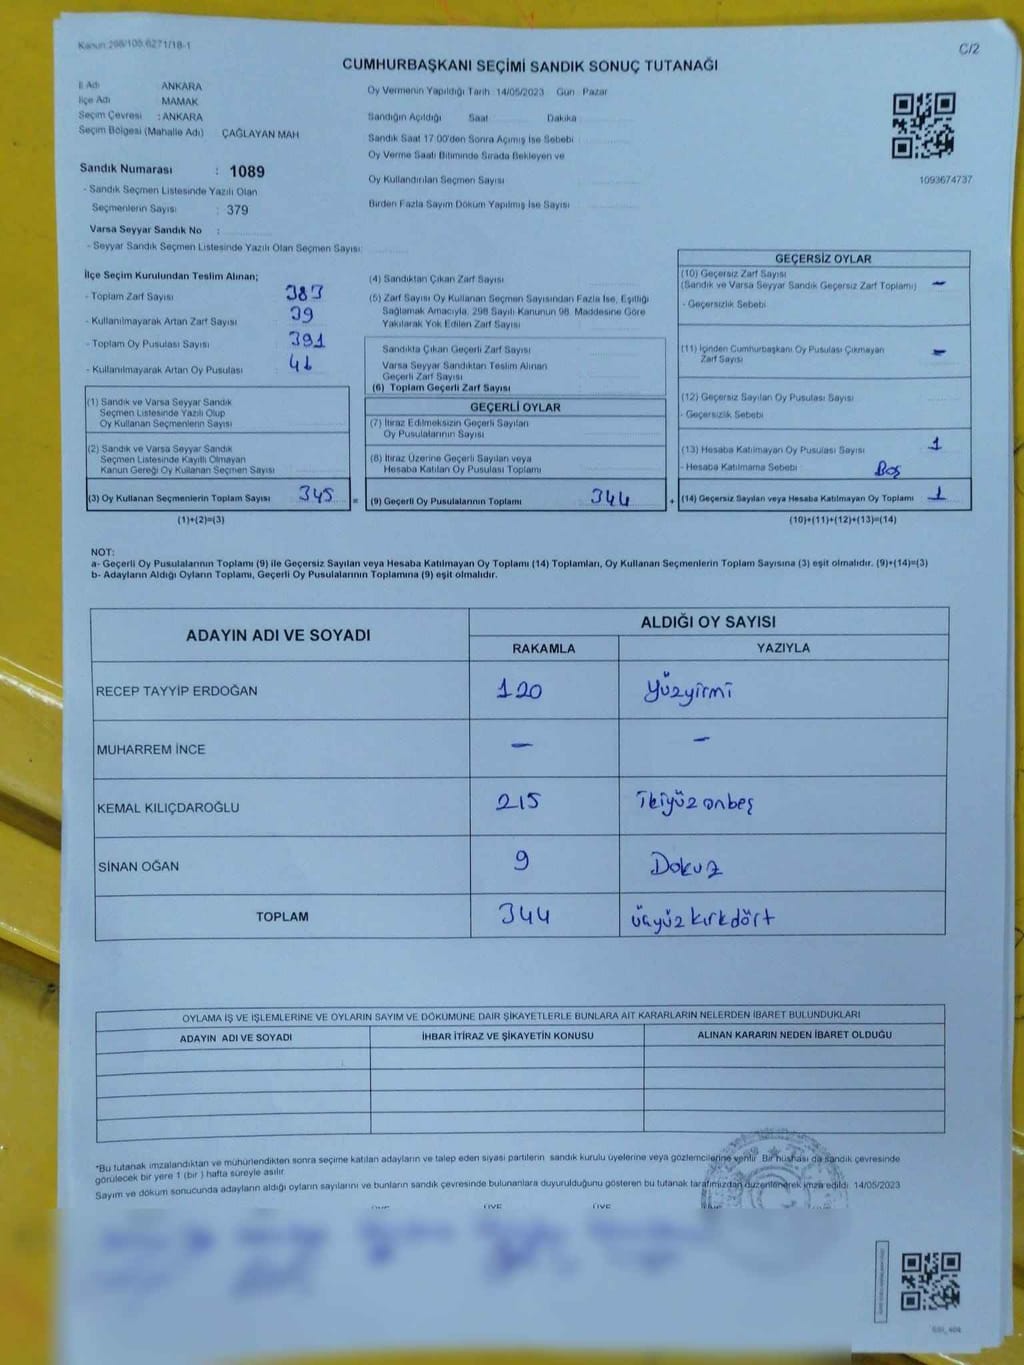 Kanun 298/105.6271/18-1
C/2
CUMHURBAŞKANI SEÇİMİ SANDIK SONUÇ TUTANAĞI
İl Adı ANKARA
İlçe Adı MAMAK
Seçim Çevresi : ANKARA
Seçim Bölgesi (Mahalle Adı) ÇAĞLAYAN MAH
Sandık Numarası : 1089
- Sandık Seçmen Listesinde Yazılı Olan
Seçmenlerin Sayısı : 379
Varsa Seyyar Sandık No :
- Seyyar Sandık Seçmen Listesinde Yazılı Olan Seçmen Sayısı
Oy Vermenin Yapıldığı Tarih 14/05/2023 Gün Pazar
Sandığın Açıldığı Saat Dakika
Sandık Saat 17 00'den Sonra Açımış İse Sebebi
Oy Verme Saati Bitiminde Sırada Bekleyen ve
Oy Kullandırılan Seçmen Sayısı
Birden Fazla Sayım Döküm Yapılmış İse Sayısı
1093674737
İlçe Seçim Kurulundan Teslim Alınan;
- Toplam Zarf Sayısı 383
- Kullanılmayarak Artan Zarf Sayısı 39
- Toplam Oy Pusulası Sayısı 391
- Kullanılmayarak Artan Oy Pusulası 46
(1) Sandık ve Varsa Seyyar Sandık
Seçmen Listesinde Yazılı Olup
Oy Kullanan Seçmenlerin Sayısı
(2) Sandık ve Varsa Seyyar Sandık
Seçmen Listesinde Kayıtlı Olmayan
Kanun Gereği Oy Kullanan Seçmen Sayısı
(3) Oy Kullanan Seçmenlerin Toplam Sayısı 345 =
(1)+(2)=(3)
(4) Sandıktan Çıkan Zarf Sayısı
(5) Zarf Sayısı Oy Kullanan Seçmen Sayısından Fazla İse, Eşitliği
Sağlamak Amacıyla, 298 Sayılı Kanunun 98. Maddesine Göre
Yakılarak Yok Edilen Zarf Sayısı
Sandıkta Çıkan Geçerli Zarf Sayısı
Varsa Seyyar Sandıktan Teslim Alınan
Geçerli Zarf Sayısı
(6) Toplam Geçerli Zarf Sayısı
GEÇERLİ OYLAR
(7) İtiraz Edilmeksizin Geçerli Sayılan
Oy Pusulalarının Sayısı
(8) İtiraz Üzerine Geçerli Sayılan veya
Hesaba Katılan Oy Pusulası Toplamı
(9) Geçerli Oy Pusulalarının Toplamı 344 +
GEÇERSİZ OYLAR
(10) Geçersiz Zarf Sayısı
(Sandık ve Varsa Seyyar Sandık Geçersiz Zarf Toplamı) -
- Geçersizlik Sebebi
(11) İçinden Cumhurbaşkanı Oy Pusulası Çıkmayan
Zarf Sayısı -
(12) Geçersiz Sayılan Oy Pusulası Sayısı
- Geçersizlik Sebebi
(13) Hesaba Katılmayan Oy Pusulası Sayısı 1
- Hesaba Katılmama Sebebi Boş
(14) Geçersiz Sayılan veya Hesaba Katılmayan Oy Toplamı 1
(10)+(11)+(12)+(13)=(14)
NOT:
a- Geçerli Oy Pusulalarının Toplamı (9) ile Geçersiz Sayılan veya Hesaba Katılmayan Oy Toplamı (14) Toplamları, Oy Kullanan Seçmenlerin Toplam Sayısına (3) eşit olmalıdır. (9)+(14)=(3)
b- Adayların Aldığı Oyların Toplamı, Geçerli Oy Pusulalarının Toplamına (9) eşit olmalıdır.
ADAYIN ADI VE SOYADI ALDIĞI OY SAYISI
RAKAMLA YAZIYLA
RECEP TAYYİP ERDOĞAN 120 Yüzyirmi
MUHARREM İNCE - -
KEMAL KILIÇDAROĞLU 215 İkiyüz onbeş
SİNAN OĞAN 9 Dokuz
TOPLAM 344 üçyüz kırkdört
OYLAMA İŞ VE İŞLEMLERİNE VE OYLARIN SAYIM VE DÖKÜMÜNE DAİR ŞİKAYETLERLE BUNLARA AİT KARARLARIN NELERDEN İBARET BULUNDUKLARI
ADAYIN ADI VE SOYADI İHBAR İTİRAZ VE ŞİKAYETİN KONUSU ALINAN KARARIN NEDEN İBARET OLDUĞU
*Bu tutanak imzalandıktan ve mühürlendikten sonra seçime katılan adayların ve talep eden siyasi partilerin sandık kurulu üyelerine veya gözlemcilerine verilir. Bir nüshası da sandık çevresinde
görülecek bir yere 1 (bir ) hafta süreyle asılır.
Sayım ve döküm sonucunda adayların aldığı oyların sayılarını ve bunların sandık çevresinde bulunanlara duyurulduğunu gösteren bu tutanak tarafımızdan düzenlenerek imza edildi. 14/05/2023
ÜYE ÜYE ÜYE